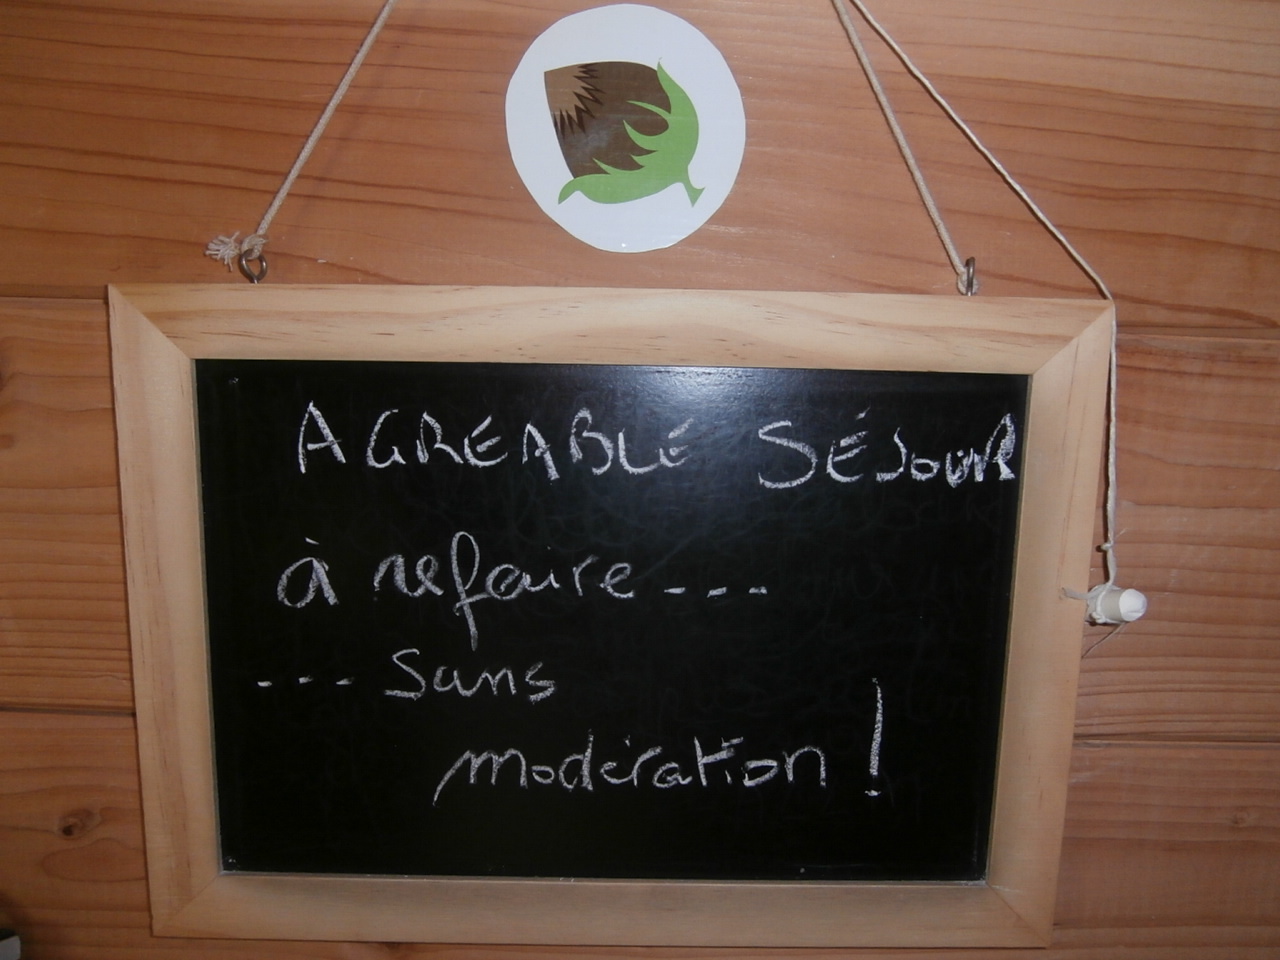 AGREABLÉ SÉJOUR
à refaire---
--- Sans
modération !